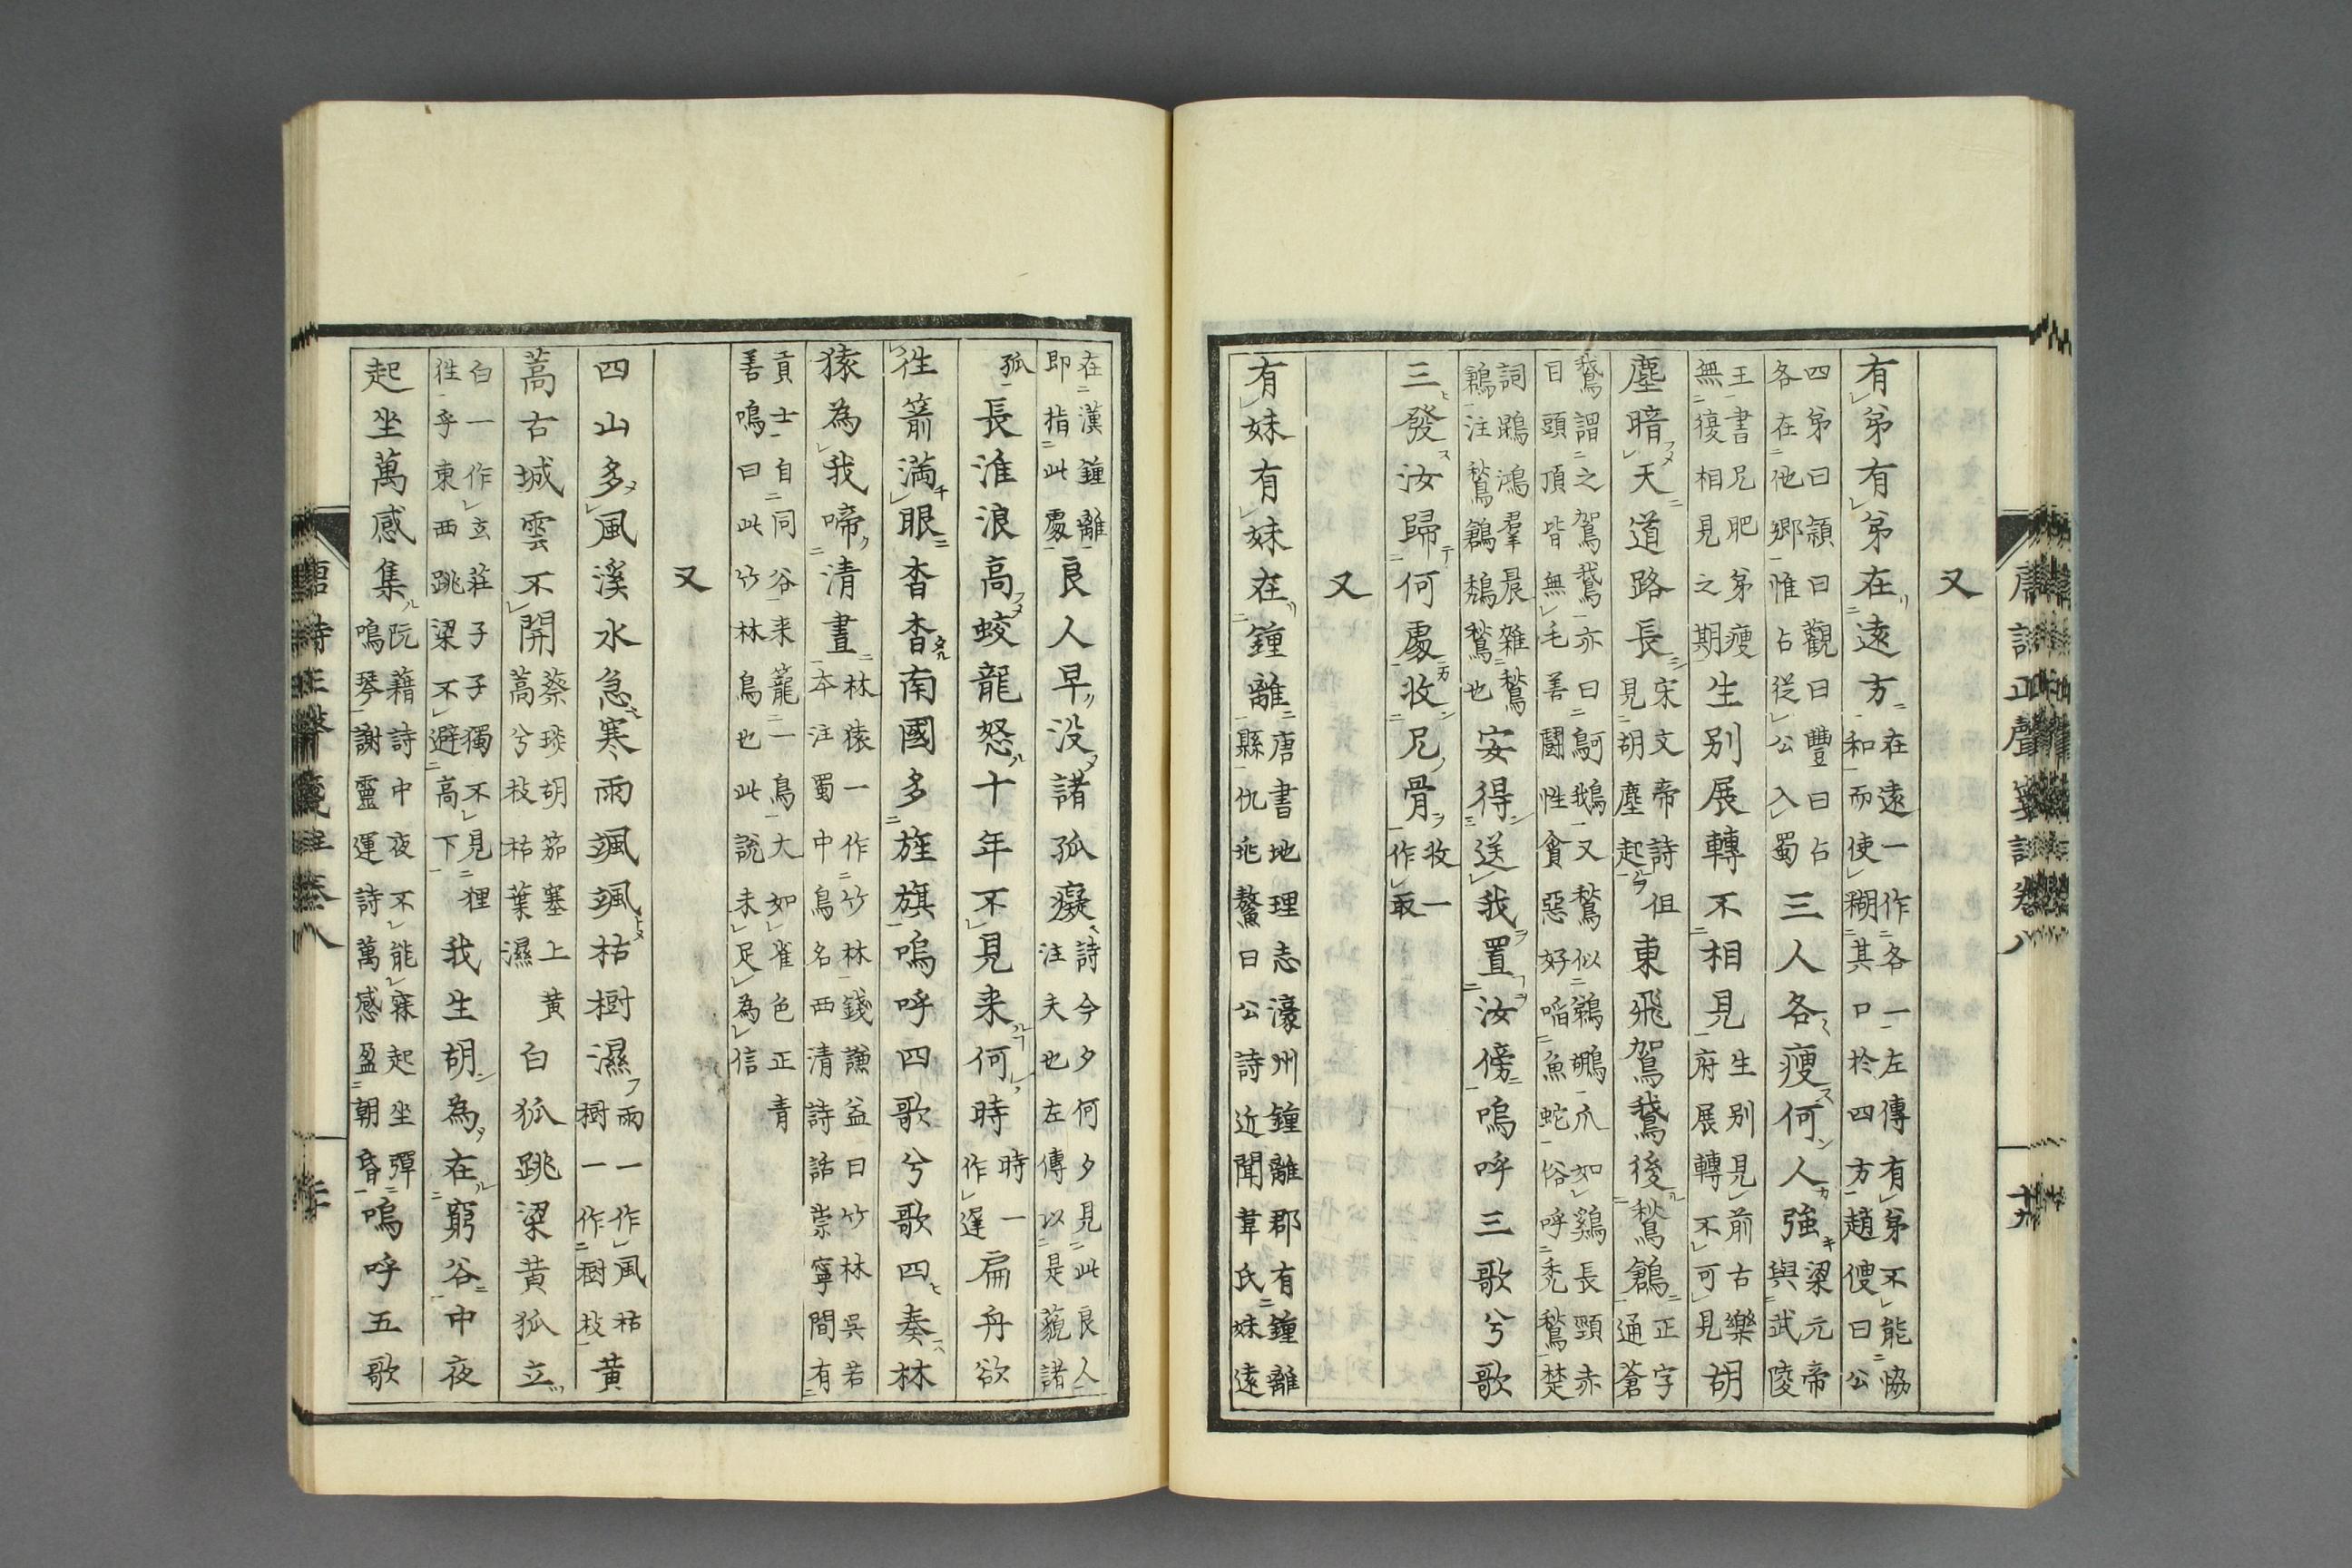 又
有弟有弟在遠方在遠一作各一左傳有弟不能協
和而使糊其口於四方趙傁曰公
四弟曰頴曰觀曰豐曰占
各在他郷惟占従公入蜀三人各瘦何人強梁元帝
與武陵
王書兄肥弟瘦
無復相見之期生別展轉不相見生別見前古樂
府展轉不可見胡
塵暗天道路長宋文帝詩
見胡塵起但東飛鴐鵞後鶖鶬正字
通蒼
鵞謂之鴐鵞亦曰鴚鵝又鶖似鶴鶘爪如鷄長頸赤
目頭頂皆無毛善闘性貪惡好啗魚蛇俗呼禿鶖楚
詞鵾鴻羣晨雜鶖
鶬注鶖鶬鵚鶖也安得送我置汝傍嗚呼三歌兮歌
三發汝歸何處收兄骨收一
作取
又
有妹有妹在鍾離唐書地理志濠州鍾離郡有鍾離
縣仇兆鰲曰公詩近聞韋氏妹遠
在漢鍾離
即指此處良人早没諸孤癡詩今夕何夕見此良人
注夫也左傳以是藐諸
孤長淮浪高蛟龍怒十年不見来何時時一
作遲扁舟欲
徃箭満眼杳杳南國多旌旗嗚呼四歌兮歌四奏林
猿為我啼清晝林猿一作竹林錢謙益曰竹林吳若
本注蜀中鳥名西清詩話崇寧間有
貢士自同谷来籠一鳥大如雀色正青
善鳴曰此竹林鳥也此説未足為信
又
四山多風溪水急寒雨颯颯枯樹濕雨一作風枯
樹一作樹枝黄
蒿古城雲不開蔡琰胡笳塞上黄
蒿兮枝枯葉濕白狐跳梁黄狐立
白一作玄荘子子獨不見狸
徃乎東西跳梁不避高下我生胡為在窮谷中夜
起坐萬感集阮藉詩中夜不能寐起坐彈
鳴琴謝靈運詩萬感盈朝昏嗚呼五歌